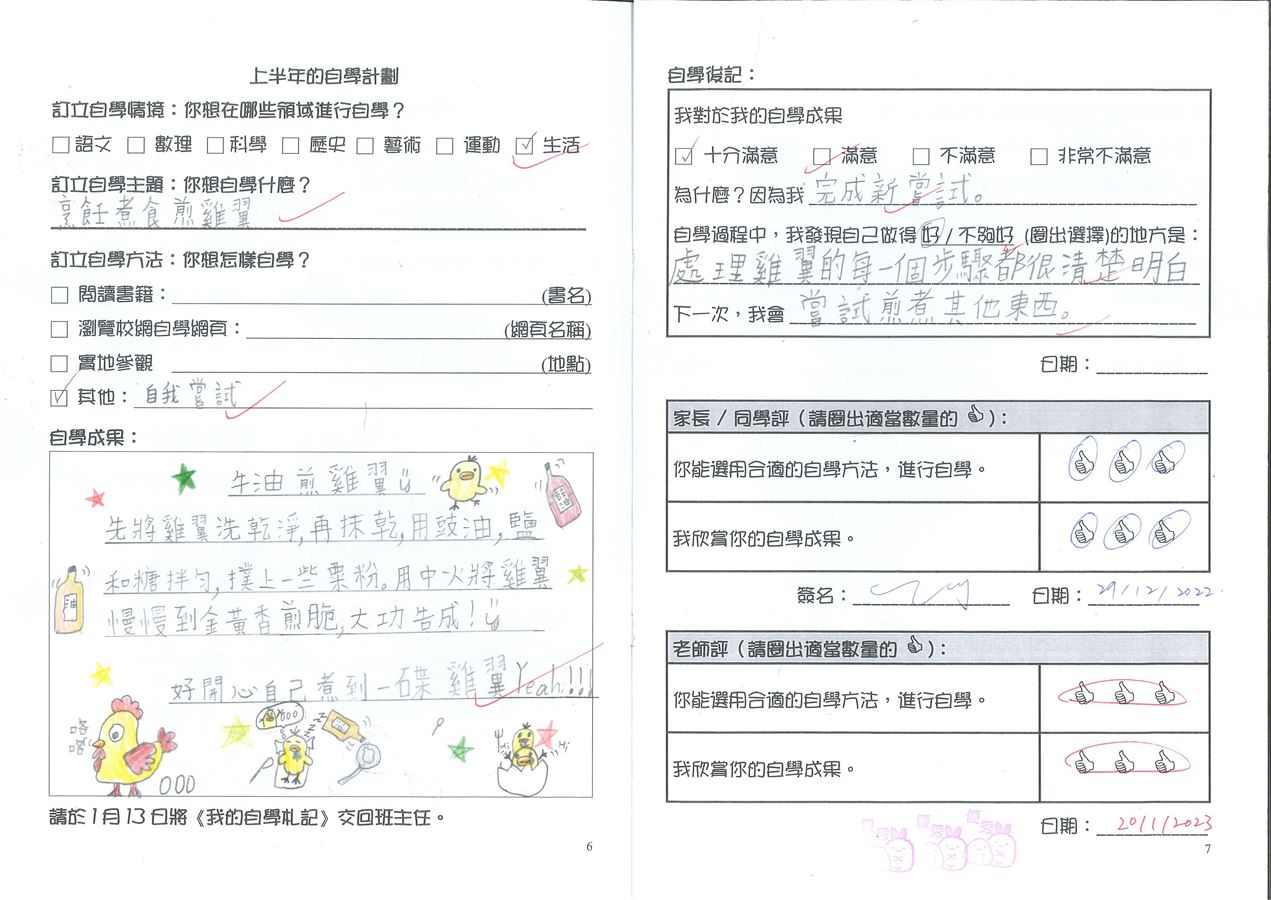 上半年的自學計劃
訂立自學情境：你想在哪些領域進行自學？
□語文 □ 數理 □科學 □ 歷史 □ 藝術 □ 運動 ☑ 生活
訂立自學主題：你想自學什麼？
烹飪煮食煎雞翼
訂立自學方法：你想怎樣自學？
□ 閱讀書籍：(書名)
□ 瀏覽校網自學網頁：(網頁名稱)
□ 實地參觀 (地點)
☑ 其他：自我嘗試
自學成果：
牛油煎雞翼
豉油
先將雞翼洗乾淨,再抹乾,用豉油,鹽
和糖拌勻,撲上一些粟粉。用中火將雞翼
油
慢慢到金黃香煎脆,大功告成！
好開心自己煮到一碟雞翼Yeah!!!
咯
咯
zzz
Hi
Hi
請於1月13日將《我的自學札記》交回班主任。
6
自學後記：
我對於我的自學成果
☑ 十分滿意 □ 滿意 □ 不滿意 □ 非常不滿意
為什麼？因為我 完成新嘗試。
自學過程中，我發現自己做得 好 / 不夠好 (圈出選擇)的地方是：
處理雞翼的每一個步驟都很清楚明白
下一次，我會 嘗試煎煮其他東西。
日期：
家長 / 同學評（請圈出適當數量的 👍）：
你能選用合適的自學方法，進行自學。
我欣賞你的自學成果。
簽名： 日期：29/12/2022.
老師評（請圈出適當數量的 👍）：
你能選用合適的自學方法，進行自學。
我欣賞你的自學成果。
日期：20/1/2023
優秀 優秀
7